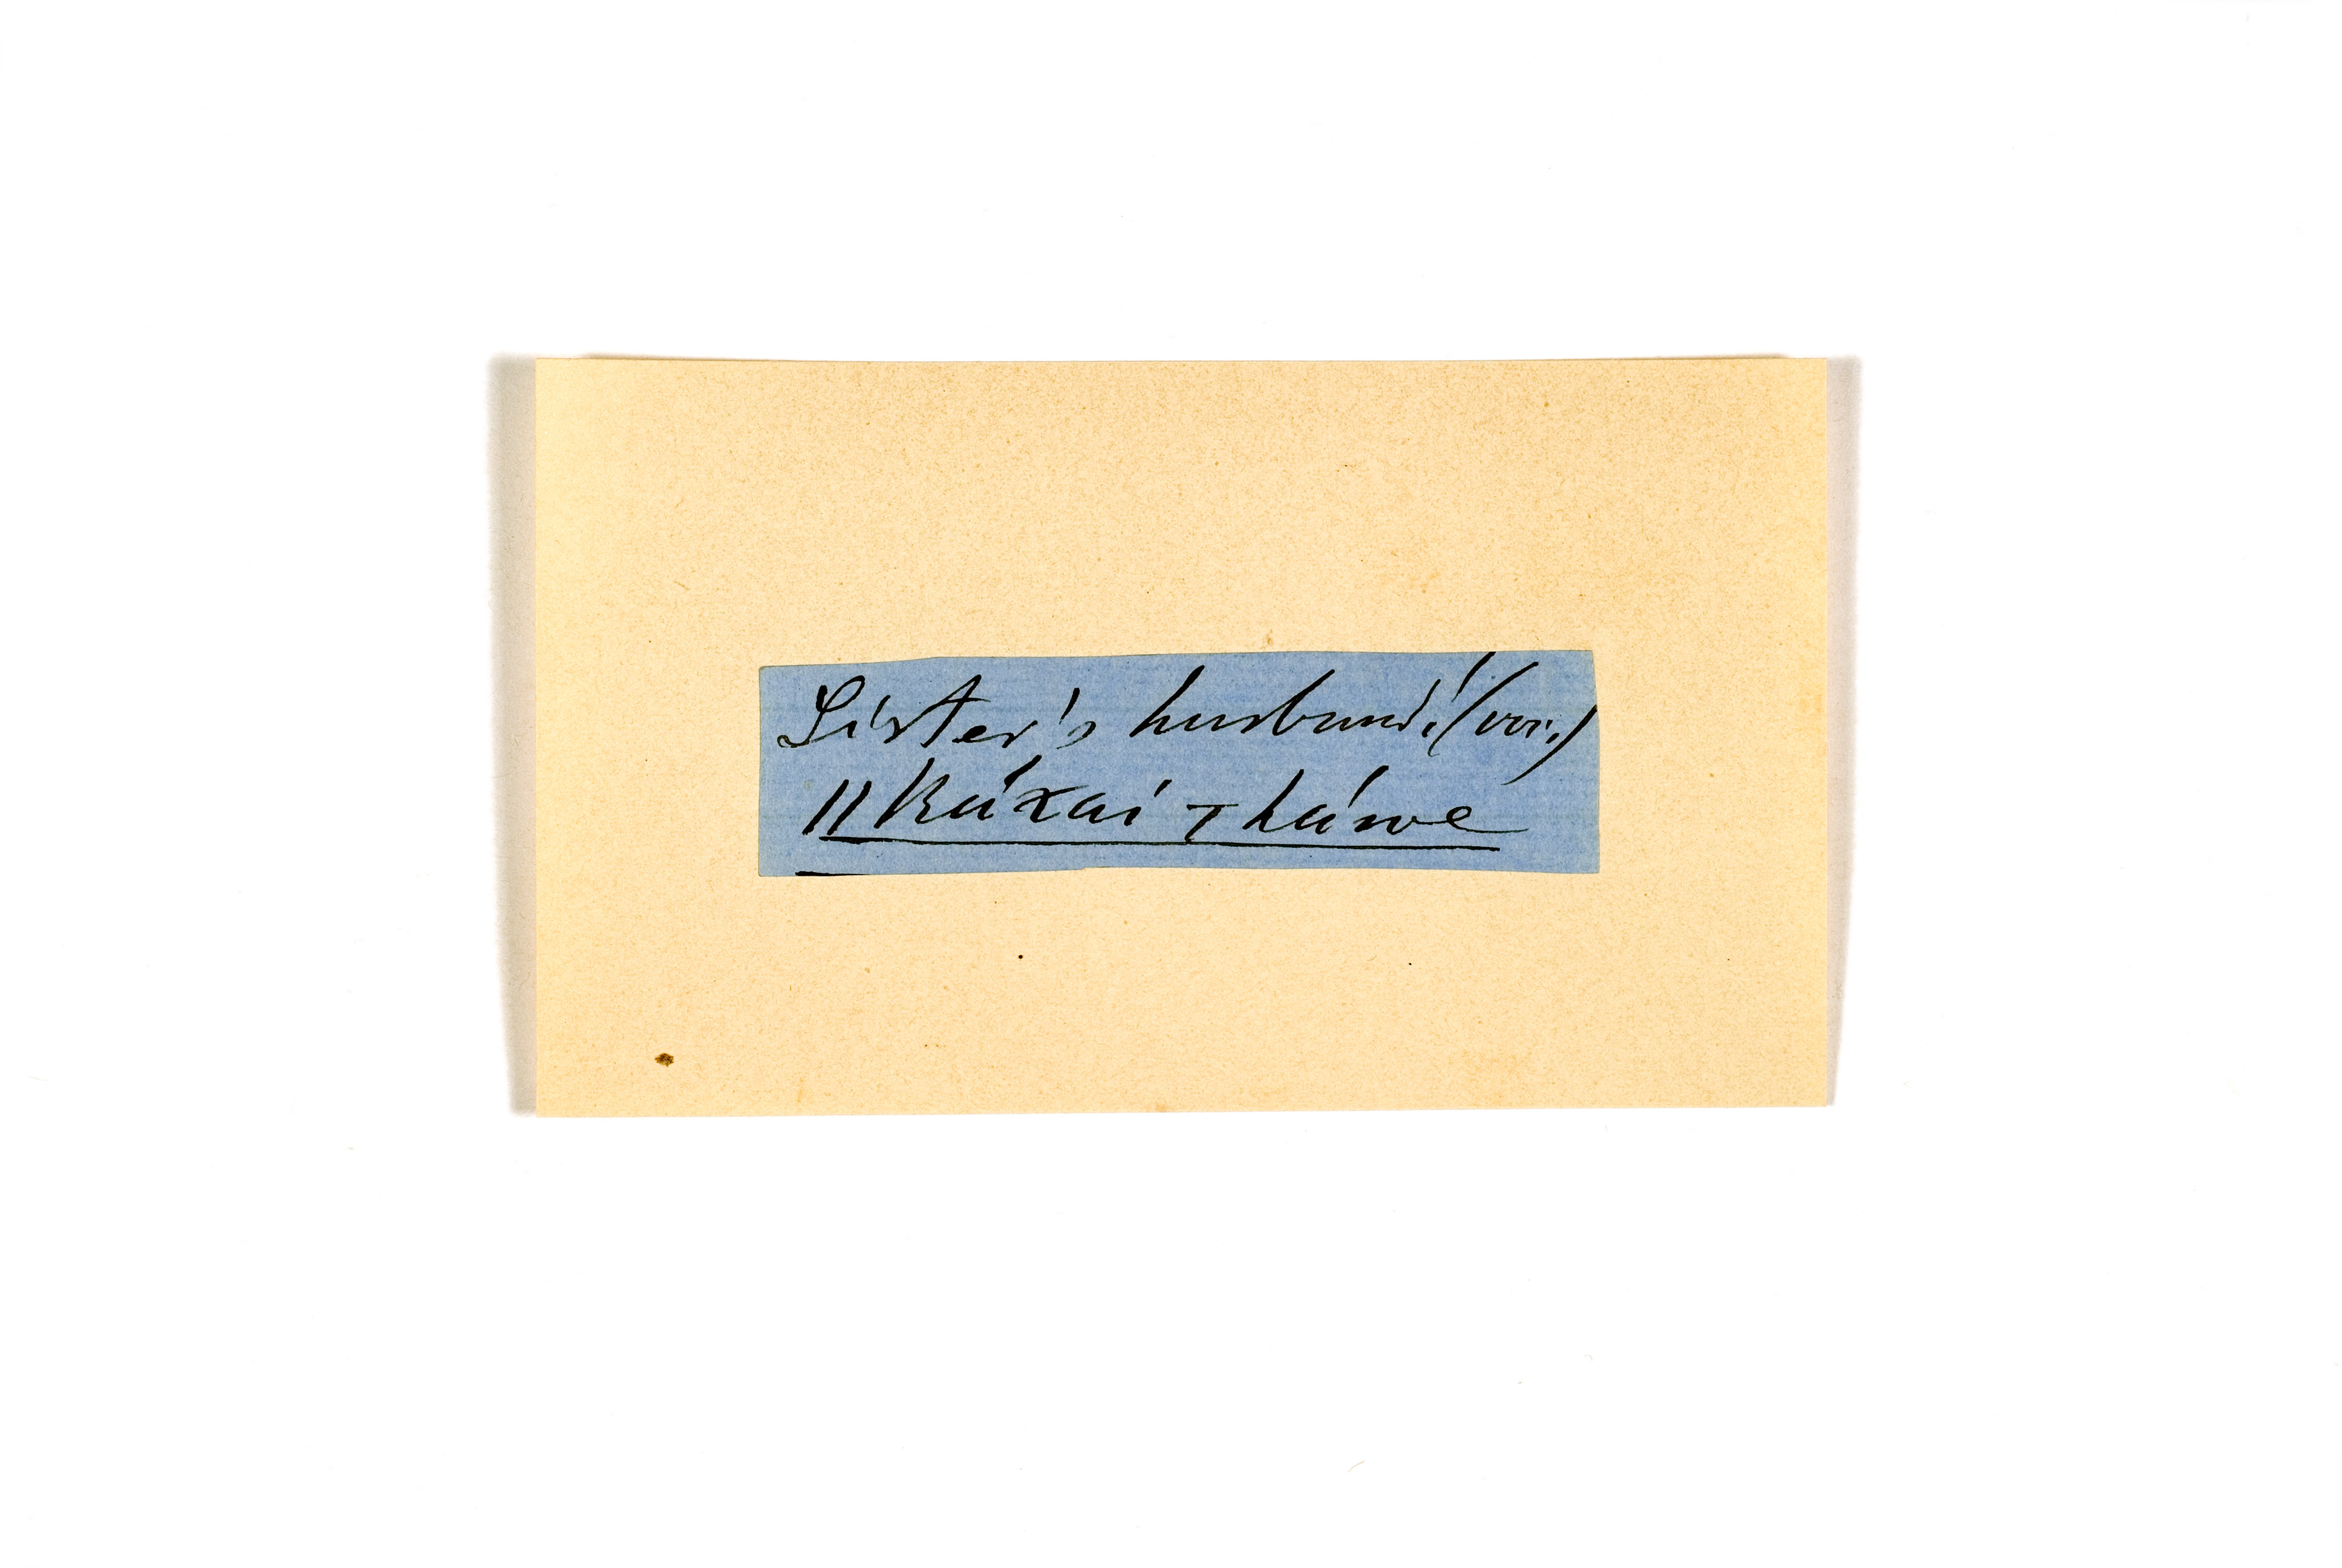 Sister's husband! (voc.)
ǁkáxai-háwe